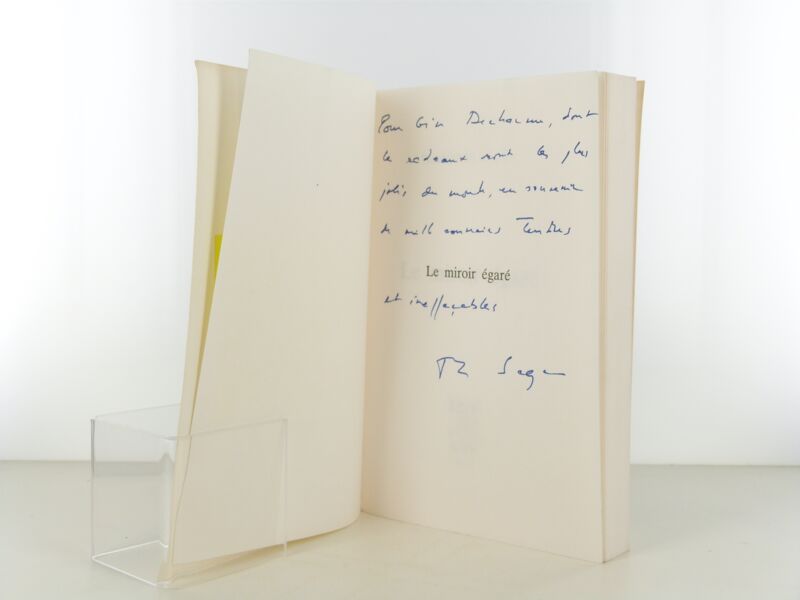 Pour Gin Dechaume, dont
le rideaux sont les plus
jolis du monde, en souvenir
de mille souvenirs Tendres
Le miroir égaré
et ineffaçables